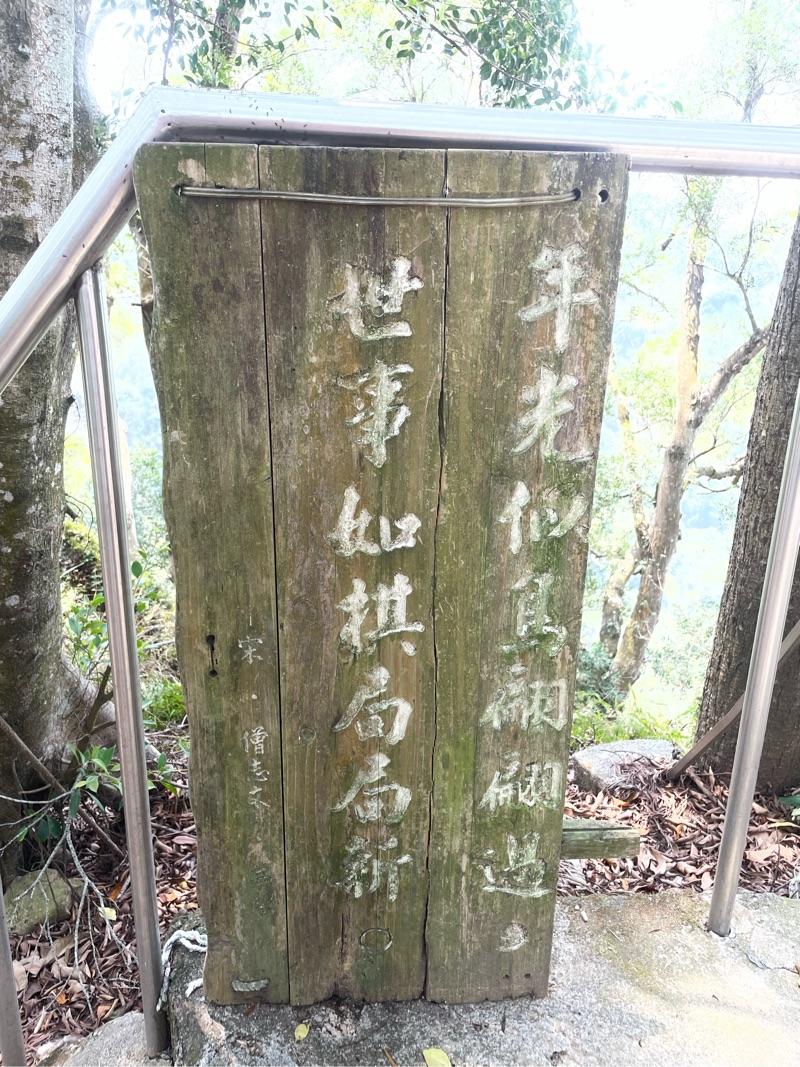 年光似鳥翩翩過，
世事如棋局局新。
宋·僧志文